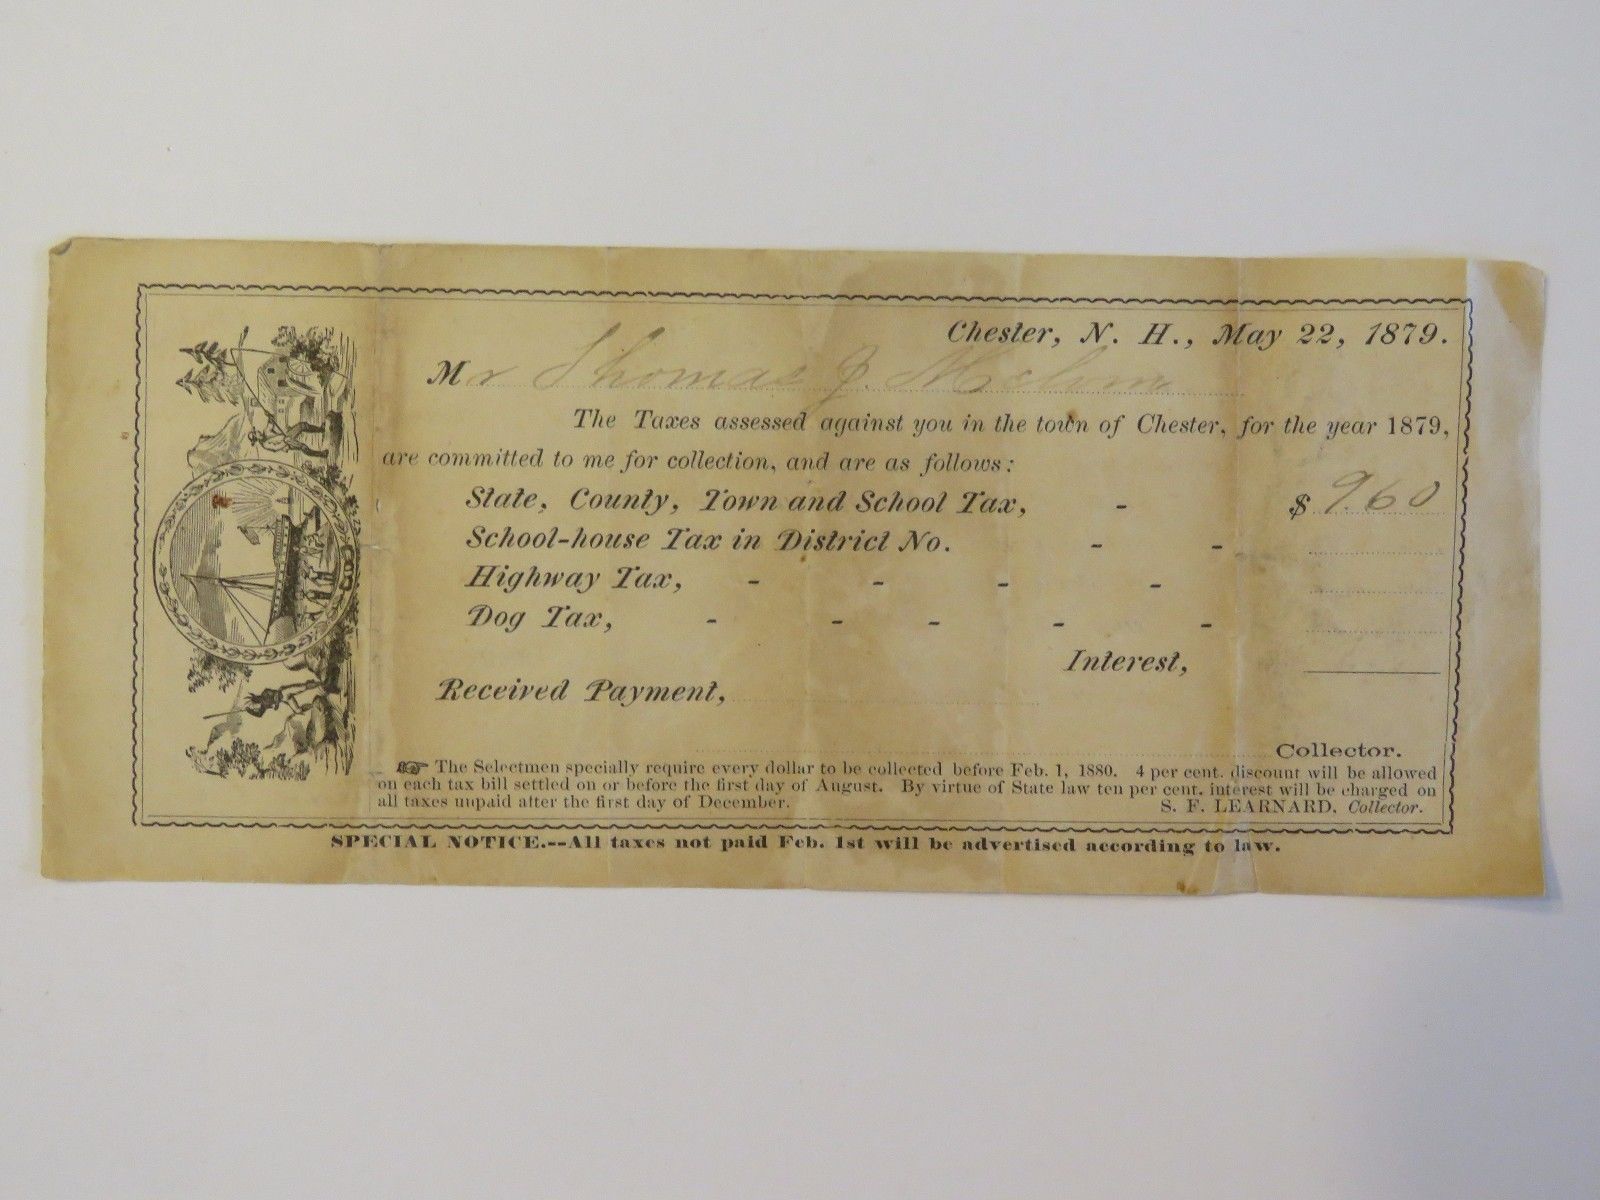 Chester, N. H., May 22, 1879.
Mr Thomas J. Melvin
The Taxes assessed against you in the town of Chester, for the year 1879,
are committed to me for collection, and are as follows:
State, County, Town and School Tax, - $ 9.60
School-house Tax in District No. - -
Highway Tax, - - - -
Dog Tax, - - - - -
Interest,
Received Payment,
Collector.
☞ The Selectmen specially require every dollar to be collected before Feb. 1, 1880. 4 per cent. discount will be allowed
on each tax bill settled on or before the first day of August. By virtue of State law ten per cent. interest will be charged on
all taxes unpaid after the first day of December. S. F. LEARNARD, Collector.
SPECIAL NOTICE.--All taxes not paid Feb. 1st will be advertised according to law.